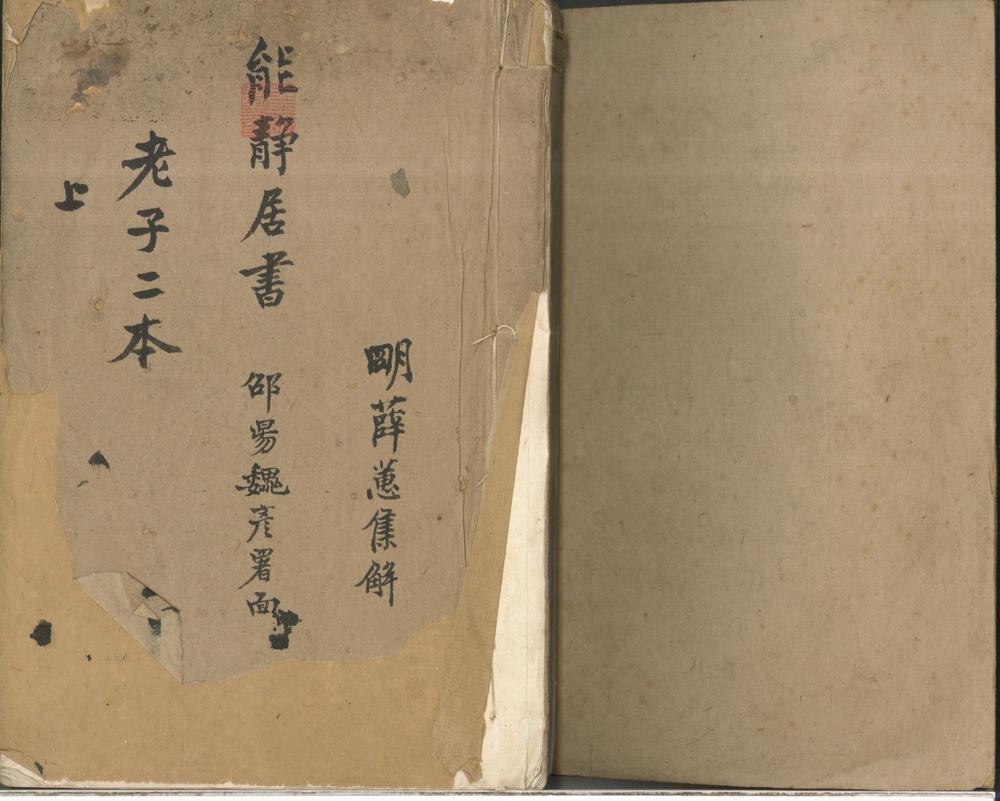 明薛蕙集解
能靜居書
邵陽魏彥署面
老子二本
上